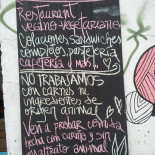 Restaurant
vegano-vegetariano
Colaciones, sandwiches
completos, pastelería
cafetería y más!
NO TRABAJAMOS
con carnes ni
ingredientes de
origen animal
Ven a probar comida
hecha con cariño y sin
maltrato animal